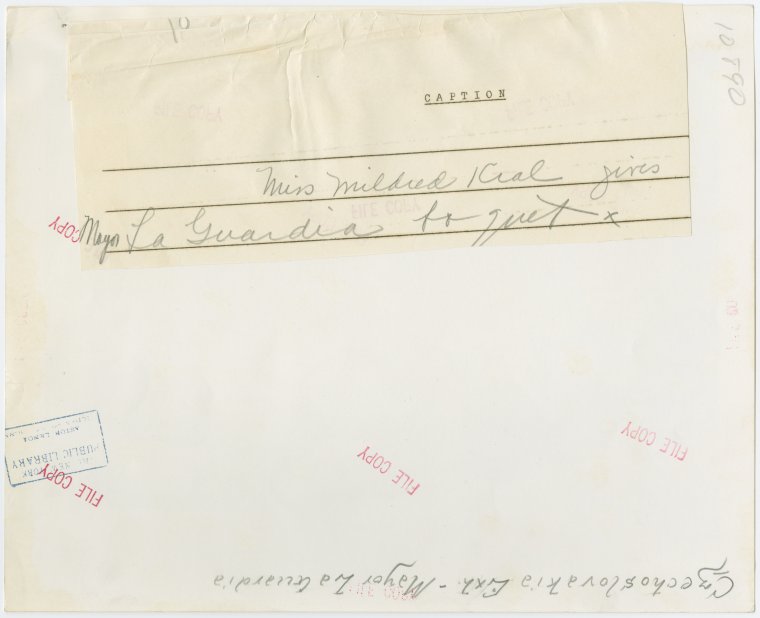 10
10890
CAPTION
Miss Mildred Kral gives
Mayor La Guardia bo-quet x
FILE COPY
FILE COPY
FILE COPY
FILE COPY
FILE COPY
NEW YORK
PUBLIC LIBRARY
ASTOR LENOX
Czechoslovakia Exh. - Mayor La Guardia
FILE COPY